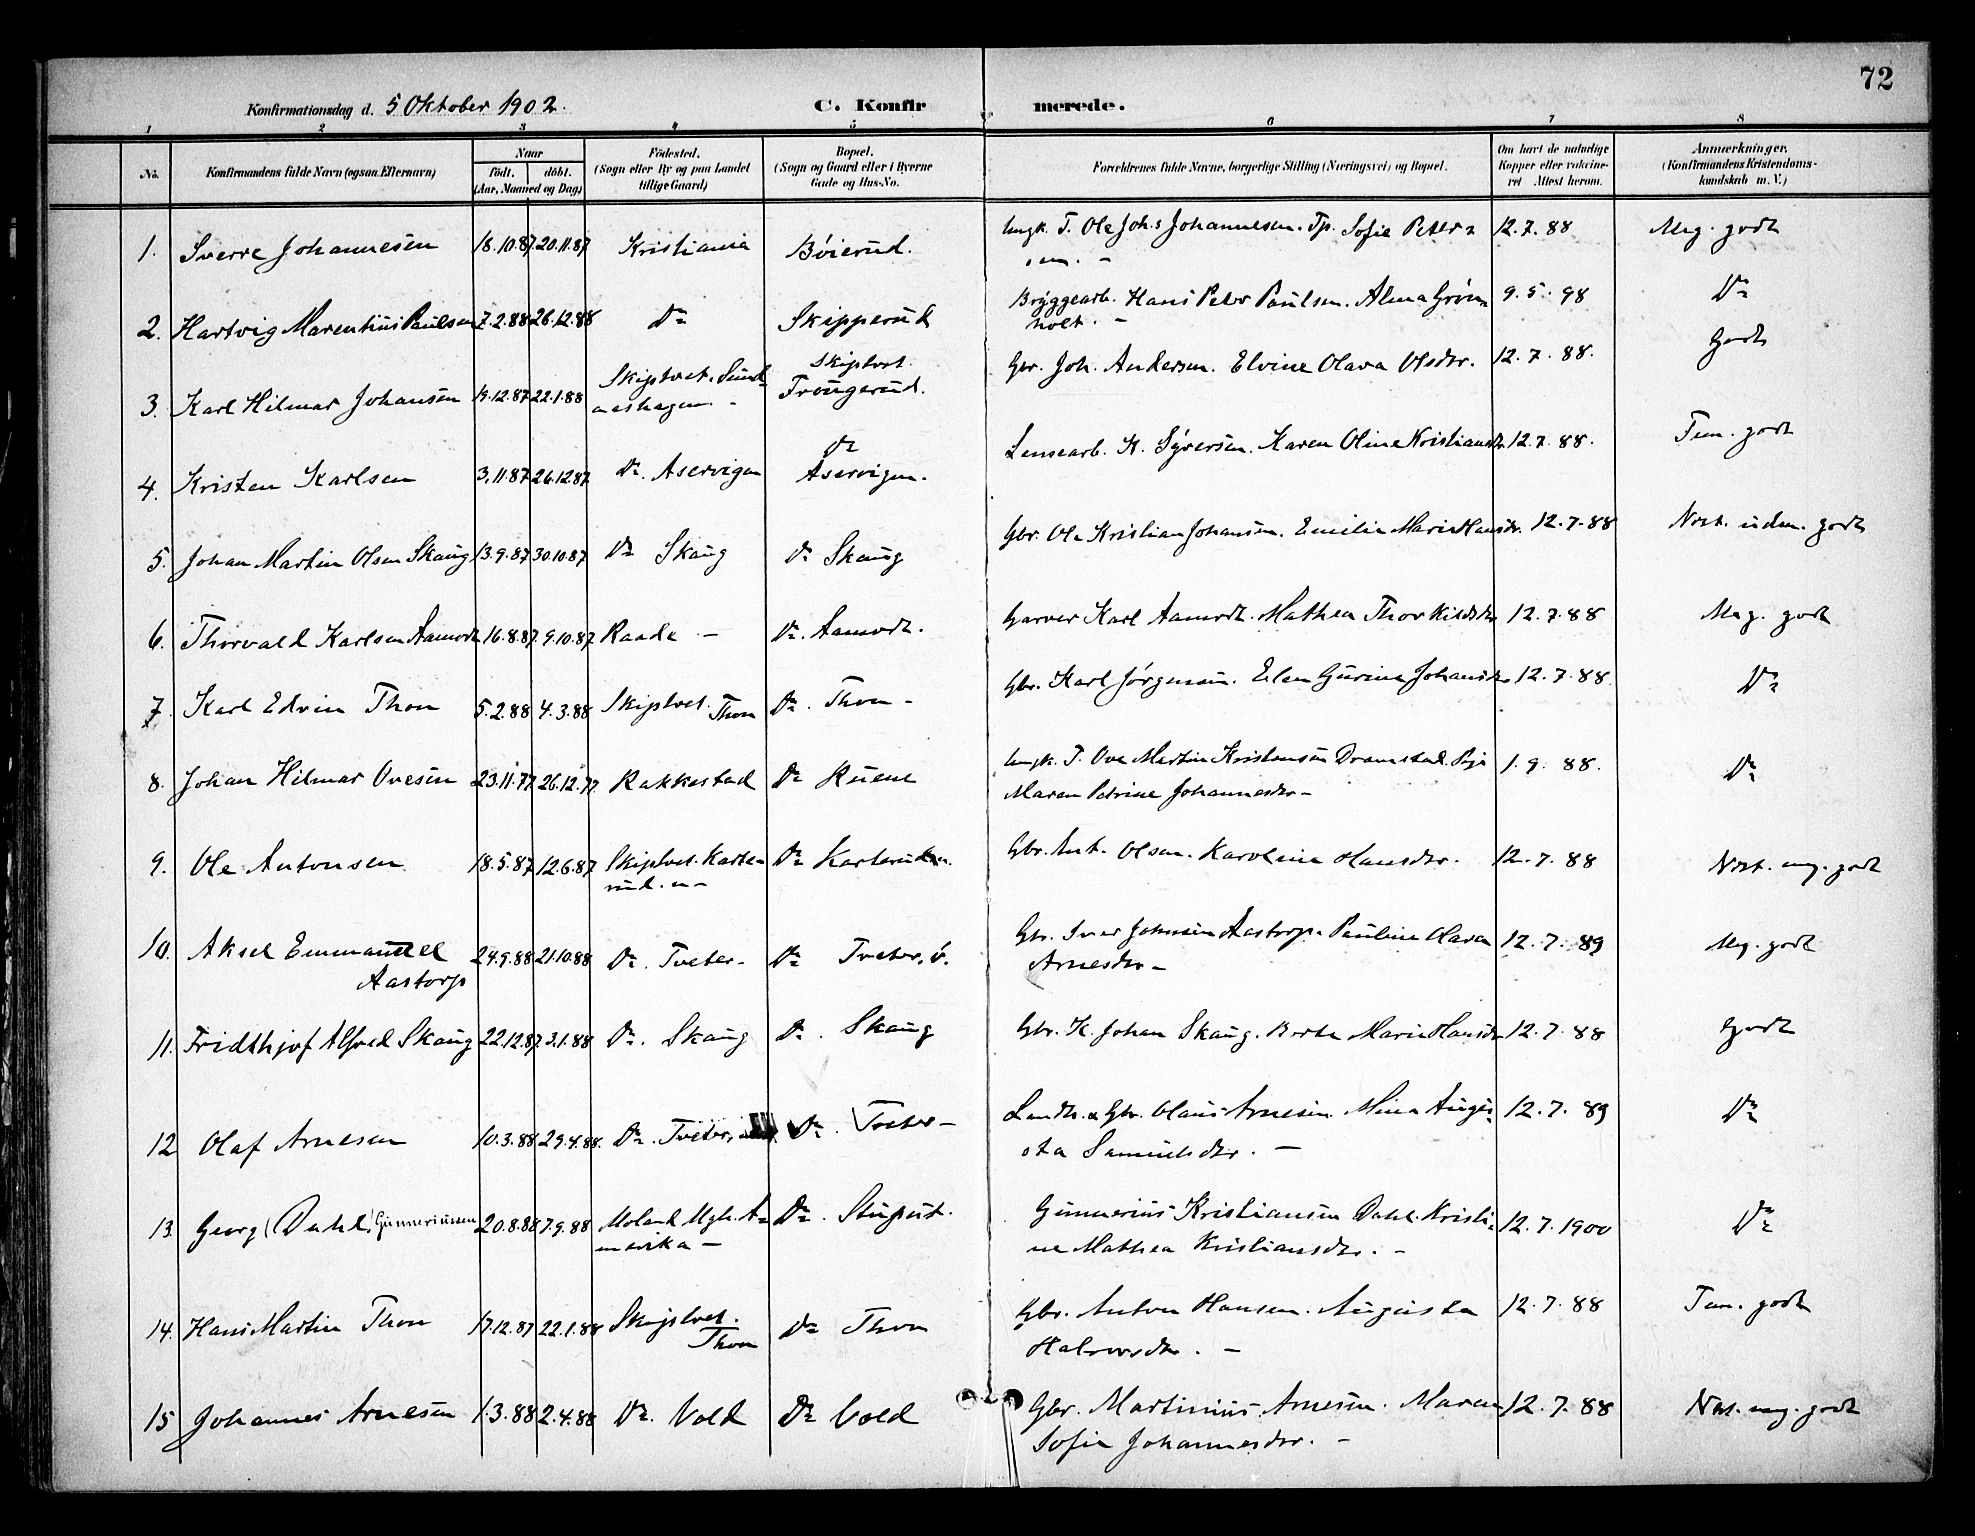 72
Konfirmationsdag d. 5 Oktober 1902.
C. Konfirmerede.
1 2 3 4 5 6 7 8
No. Konfirmandens fulde Navn (ogsaa Efternavn) Naar født. døbt. (Aar, Maaned og Dag) Fødested. (Sogn eller By og paa Landet tillige Gaard) Bopæl. (Sogn og Gaard eller i Byerne Gade og Hus-No. Forældrenes fulde Navne, borgerlige Stilling (Næringsvei) og Bopæl. Om havt de naturlige Kopper eller vaccineret Attest herom. Anmærkninger. (Konfirmandens Kristendomskundskab m. V.)
1. Sverre Johannesen 18.10.87 20.11.87 Kristiania Böierud. Ungk. T. Ole Johs Johannesen. Tp. Sofie Petersen. - 12.7.88 Meg. godt
2. Hartvig Marentius Paulsen 7.2.88 26.12.88 Do Skipperud Bryggearb. Hans Peter Paulsen. Alma Grönholt. - 9.5.98 Do
3. Karl Hilmar Johansen 19.12.87 22.1.88 Skiptvet. Sundneshagen. - Skiptvet. Trougerud. Gbr. Joh. Andersen. Elvine Olava Olsdtr. 12.7.88. Godt
4. Kristen Karlsen 3.11.87 26.12.87 Do Aservigen Do Aservigen. Lensearb. K. Syversen. Karen Oline Kristiansdtr 12.7.88. Tem. godt
5. Johan Martin Olsen Skaug 13.9.87 30.10.87 Do Skaug Do Skaug Gbr. Ole Kristian Johansen. Emilie Marie Hansdtr. 12.7.88 Nost. udm. godt
6. Thorvald Karlsen Aamodt 16.8.87 9.10.87 Raade - Do. Aamodt. Garver Karl Aamodt. Mathea Thorkildsdtr 12.7.88 Meg. godt
7. Karl Edvin Thon 5.2.88 4.3.88 Skiptvet. Thon Do. Thon - Gbr. Karl Jörgensen. Elen Gurine Johansdtr 12.7.88. Do
8. Johan Hilmar Ovesen 23.11.77 26.12.77 Rakkestad Do Ruene Ungk. T. Ove Martin Kristensen Dramstad. Pige Maren Petrine Johannesdtr - 1.9.88. Do
9. Ole Antonsen 18.5.87 12.6.87 Skiptvet. Karterud.- Do Karterud Gbr. Ant. Olsen. Karoline Hansdtr. 12.7.88 Nost. mg. godt
10. Aksel Emmanuel Aastorp 24.9.88 21.10.88 Do. Tveter - Do Tveter, ö. Gbr. Iver Johnsen Aastorp. Pauline Olava Arnesdtr - 12.7.89 Mg. godt
11. Fridthjof Alfred Skaug 22.12.87 3.1.88 Do. Skaug Do. Skaug Gbr. K. Johan Skaug. Berte Marie Hansdtr 12.7.88 Godt
12 Olaf Arnesen 10.3.88 29.4.88. Do. Tveter, Do. Tveter - Landh. & Gbr. Olaus Arnesen. Mina Augusta Samuelsdtr. - 12.7.89 Do
13. Georg (Dahl) Gunneriussen 20.8.88 7.9.88 Moland Mgh. Amerika - Do. Stuput. Gunnerius Kristiansen Dahl. Kristine Mathea Kristiansdtr. - 12.7.1900 Do
14. Hans Martin Thon 17.12.87 22.1.88 Skiptvet. Thon Do Thon Gbr. Anton Hansen. Augusta Halvorsdtr. - 12.7.88 Tem. godt
15 Johannes Arnesen 1.3.88 2.4.88 Do. Vold Do Vold Gbr. Martinius Arnesen. Maren Sofie Johannesdtr. - 12.7.88 Nost. mg. godt